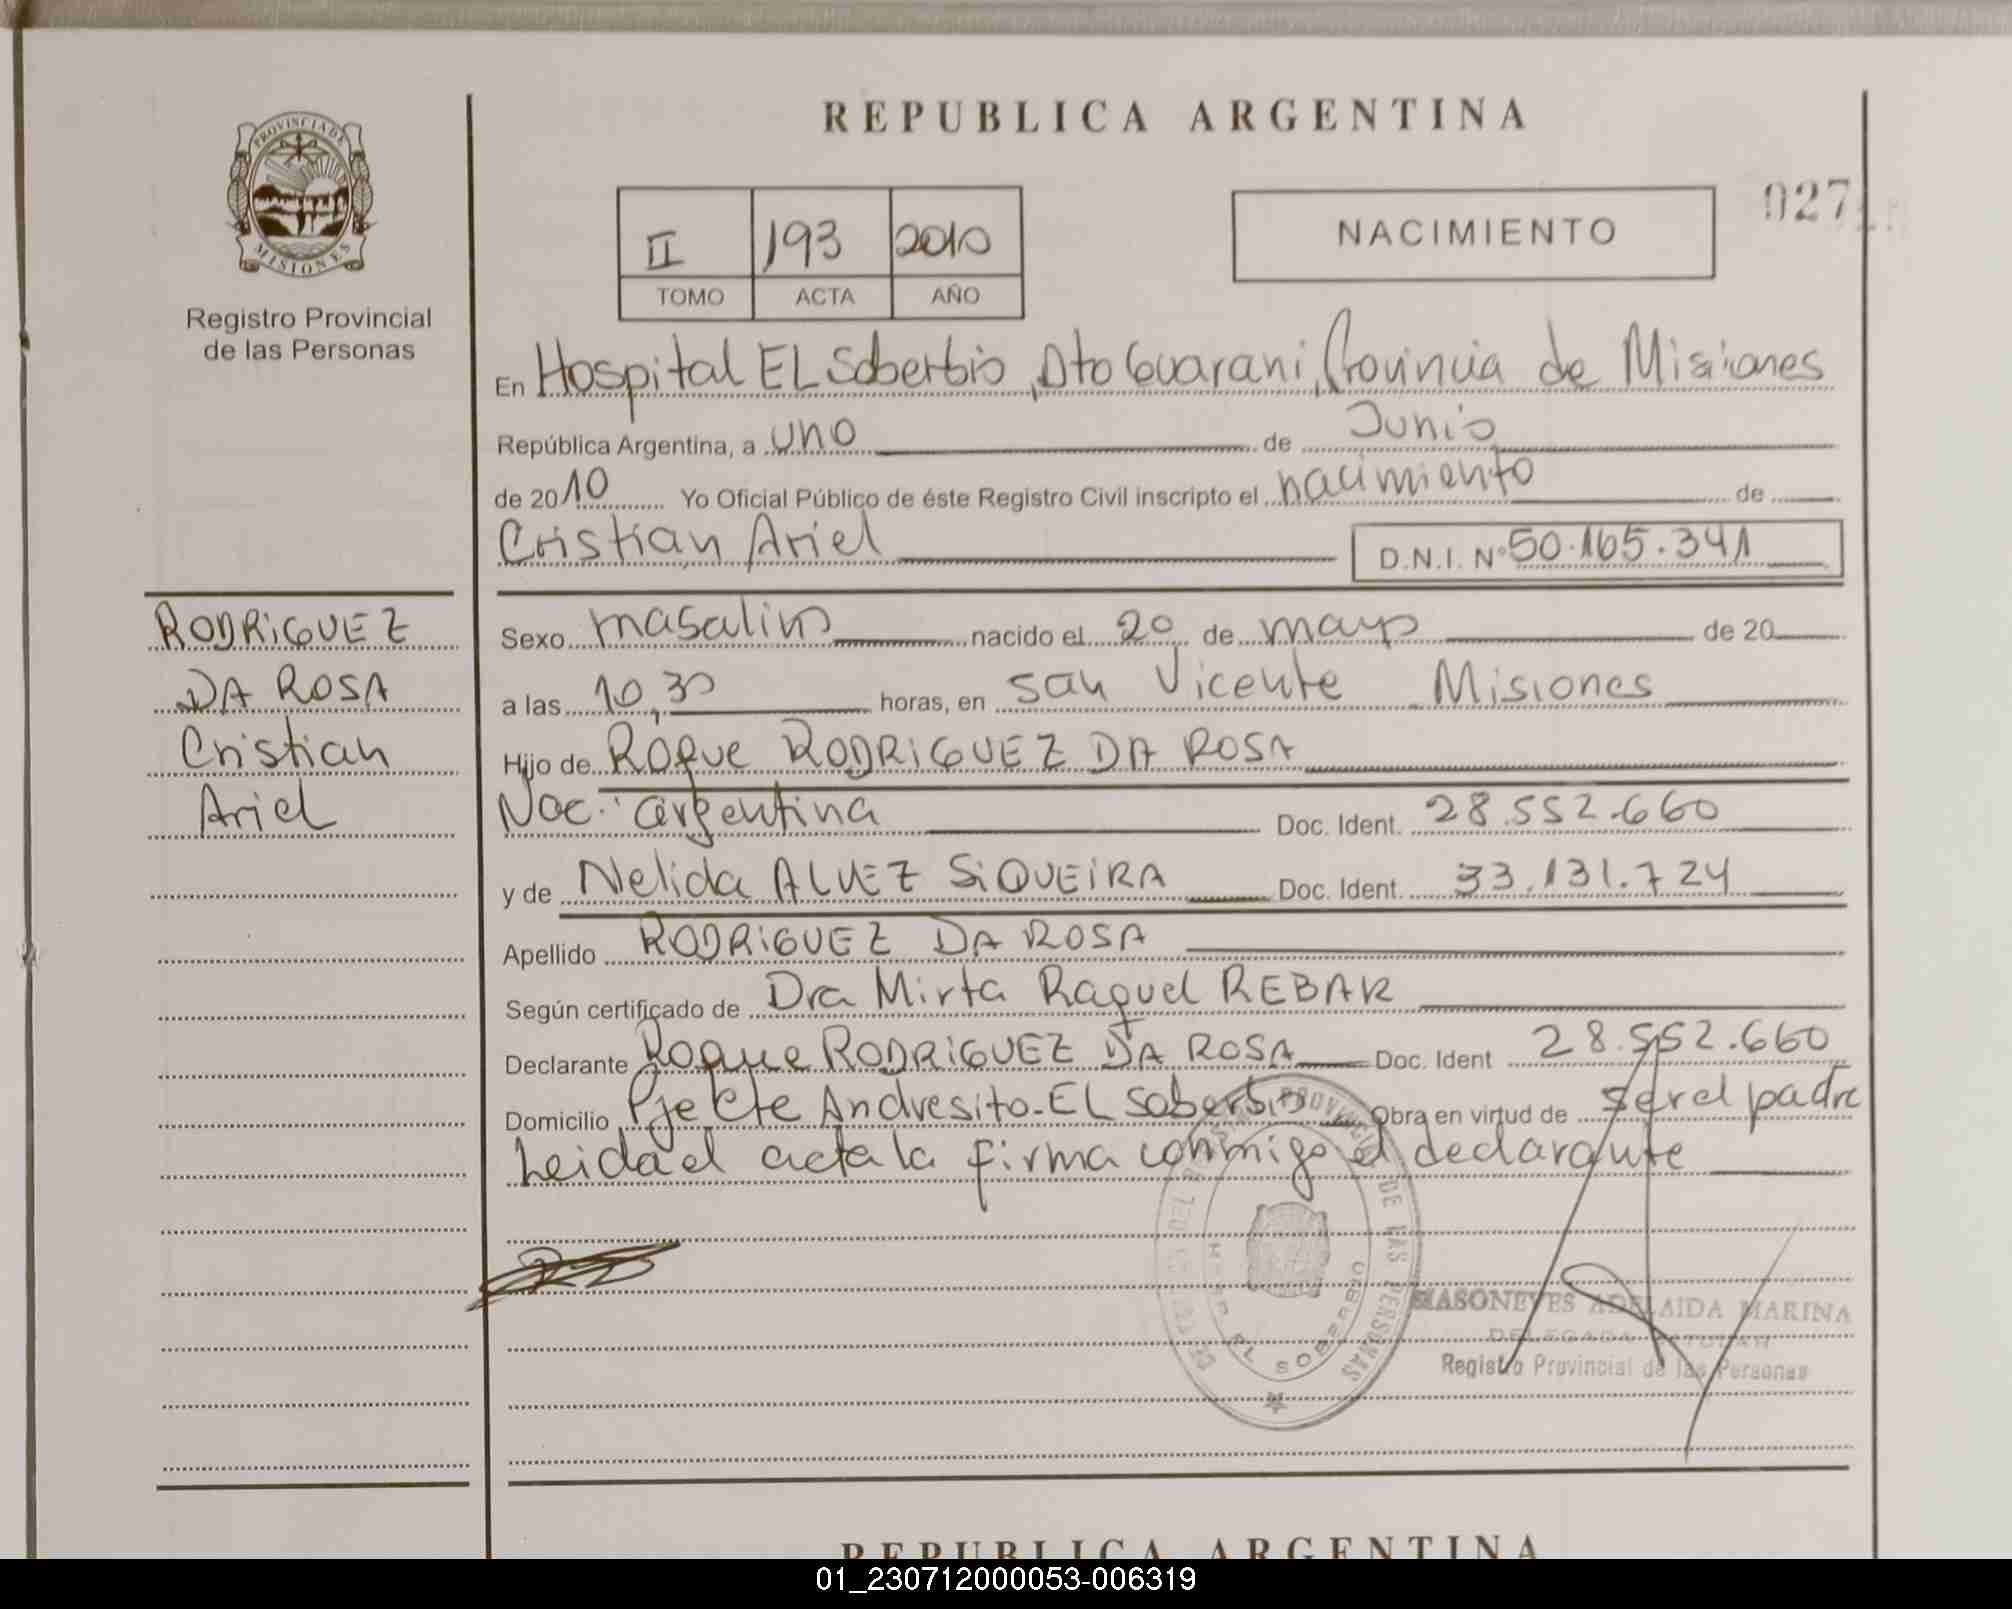 REPUBLICA ARGENTINA
PROVINCIA DE
MISIONES
Registro Provincial
de las Personas
II 193 2010
TOMO ACTA AÑO
NACIMIENTO
027
En Hospital EL Soberbio, Dto Guarani, Provincia de Misiones
República Argentina, a uno de Junio
de 2010 Yo Oficial Público de éste Registro Civil inscripto el nacimiento de
Cristian Ariel D.N.I. Nº 50.165.341
RODRIGUEZ
DA ROSA
Cristian
Ariel
Sexo masculino nacido el 20 de mayo de 20
a las 10,30 horas, en San Vicente Misiones
Hijo de Roque RODRIGUEZ DA ROSA
Nac: argentina Doc. Ident. 28.552.660
y de Nelida ALVEZ SIQUEIRA Doc. Ident. 33.131.724
Apellido RODRIGUEZ DA ROSA
Según certificado de Dra Mirta Raquel REBAK
Declarante Roque RODRIGUEZ DA ROSA Doc. Ident 28.552.660
Domicilio Pje Cte Andresito-EL Soberbio Obra en virtud de ser el padre
Leida el acta la firma conmigo el declarante
PROVINCIAL DE LAS PERSONAS
EL SOBERBIO
MASONEVES ADELAIDA MARINA
DELEGADA TITULAR
Registro Provincial de las Personas
REPUBLICA ARGENTINA
01_230712000053-006319